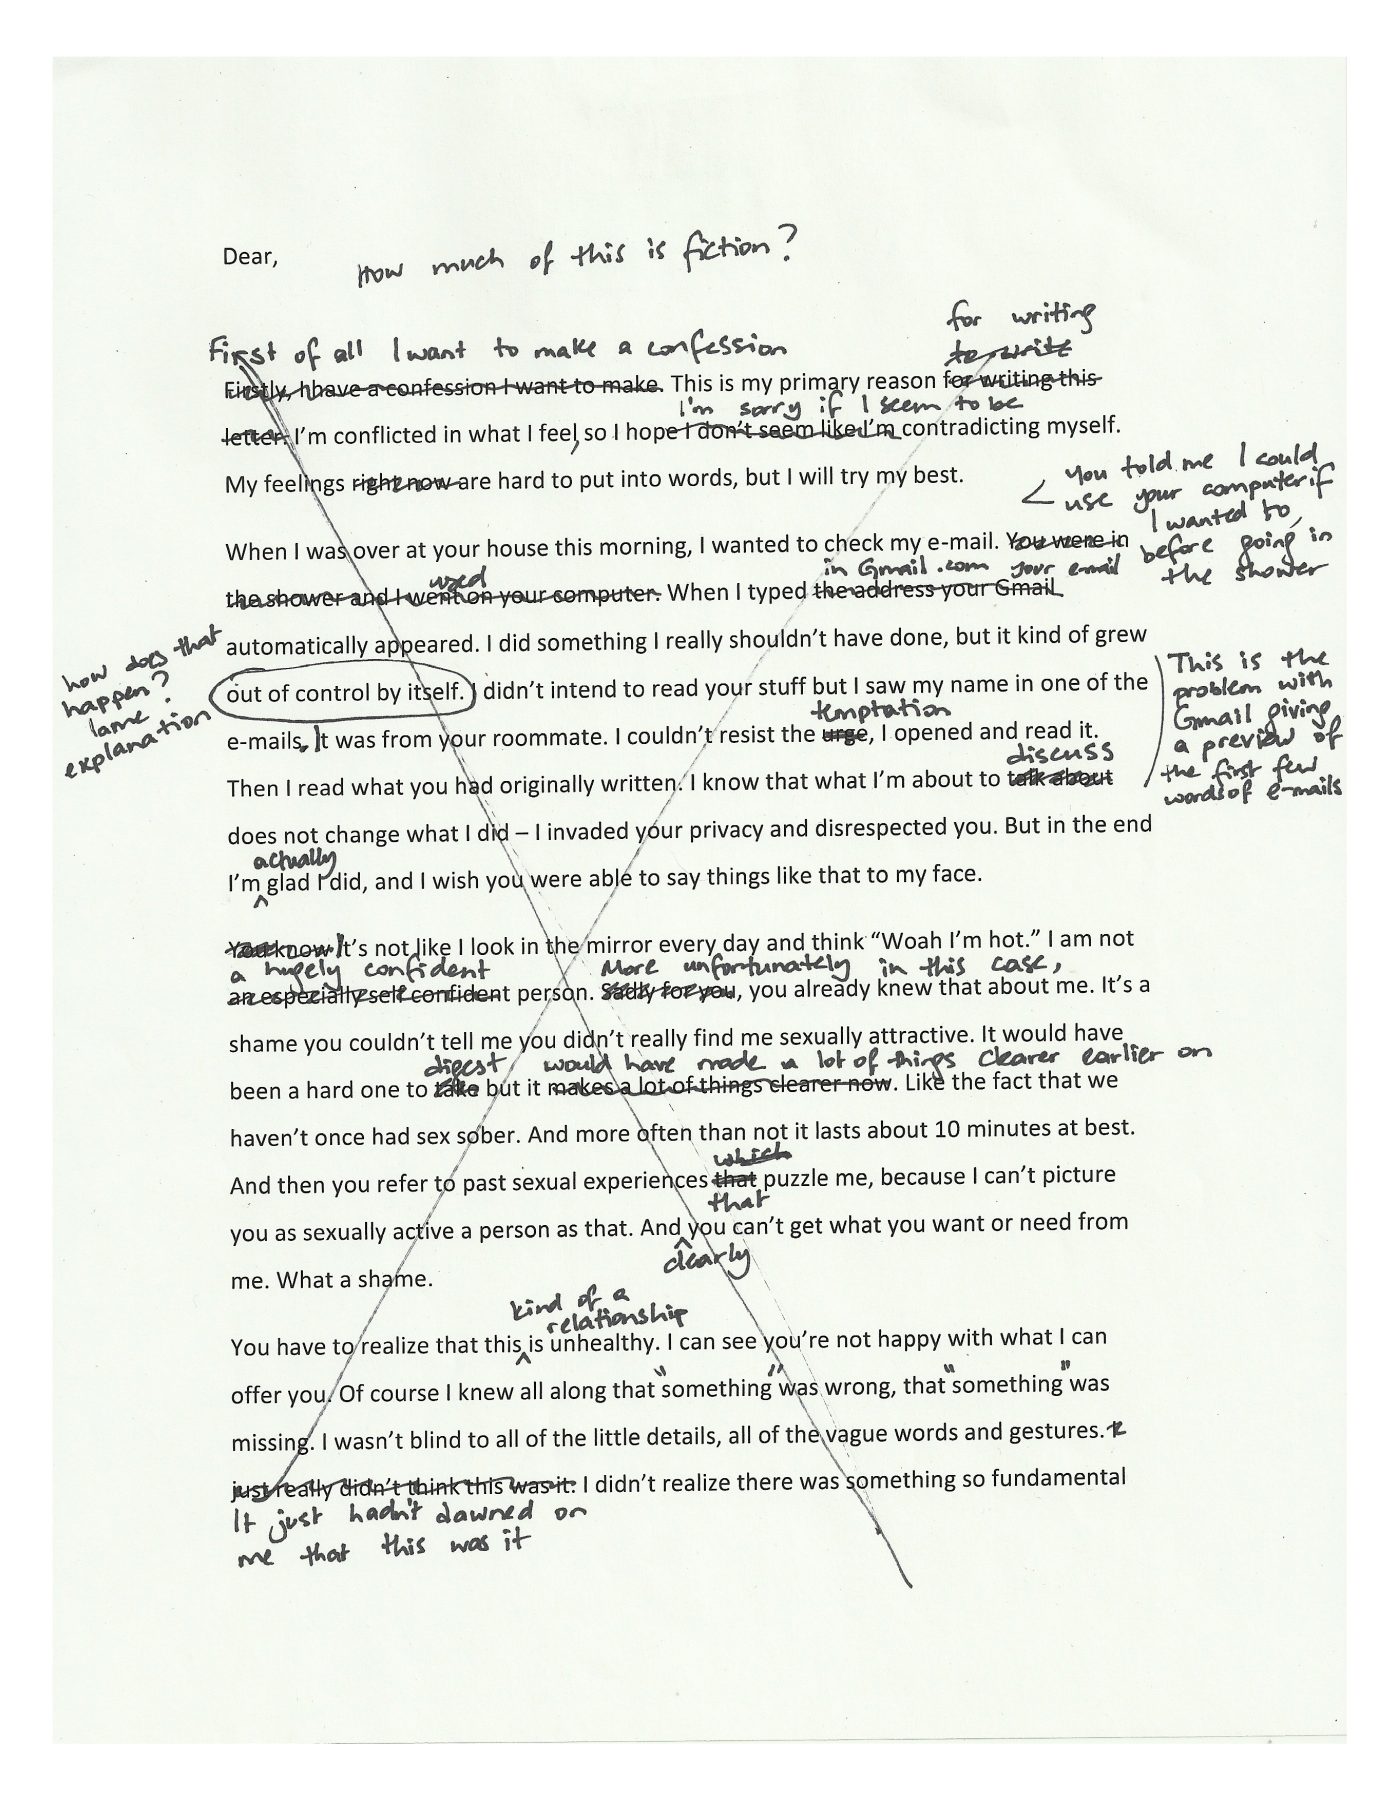 Dear,
How much of this is fiction?
for writing
to write
First of all I want to make a confession
Firstly, I have a confession I want to make. This is my primary reason for writing this
I'm sorry if I seem to be
letter. I'm conflicted in what I feel, so I hope I don't seem like I'm contradicting myself.
My feelings right now are hard to put into words, but I will try my best.
you told me I could
use your computer if
I wanted to,
before going in
the shower
When I was over at your house this morning, I wanted to check my e-mail. You were in
used
in Gmail.com your e-mail
the shower and I went on your computer. When I typed the address your Gmail
automatically appeared. I did something I really shouldn't have done, but it kind of grew
how does that
happen?
lame
explanation
out of control by itself. I didn't intend to read your stuff but I saw my name in one of the
This is the
problem with
Gmail giving
a preview of
the first few
words of e-mails
temptation
e-mails. It was from your roommate. I couldn't resist the urge, I opened and read it.
discuss
Then I read what you had originally written. I know that what I'm about to talk about
does not change what I did – I invaded your privacy and disrespected you. But in the end
actually
I'm glad I did, and I wish you were able to say things like that to my face.
You know It's not like I look in the mirror every day and think “Woah I'm hot.” I am not
a hugely confident
More unfortunately in this case,
an especially self confident person. Sadly for you, you already knew that about me. It's a
shame you couldn't tell me you didn't really find me sexually attractive. It would have
digest would have made a lot of things clearer earlier on
been a hard one to take but it makes a lot of things clearer now. Like the fact that we
haven't once had sex sober. And more often than not it lasts about 10 minutes at best.
which
And then you refer to past sexual experiences that puzzle me, because I can't picture
that
you as sexually active a person as that. And you can't get what you want or need from
clearly
me. What a shame.
kind of a
relationship
You have to realize that this is unhealthy. I can see you're not happy with what I can
offer you. Of course I knew all along that "something" was wrong, that "something" was
missing. I wasn't blind to all of the little details, all of the vague words and gestures. I
just really didn't think this was it. I didn't realize there was something so fundamental
It just hadn't dawned on
me that this was it